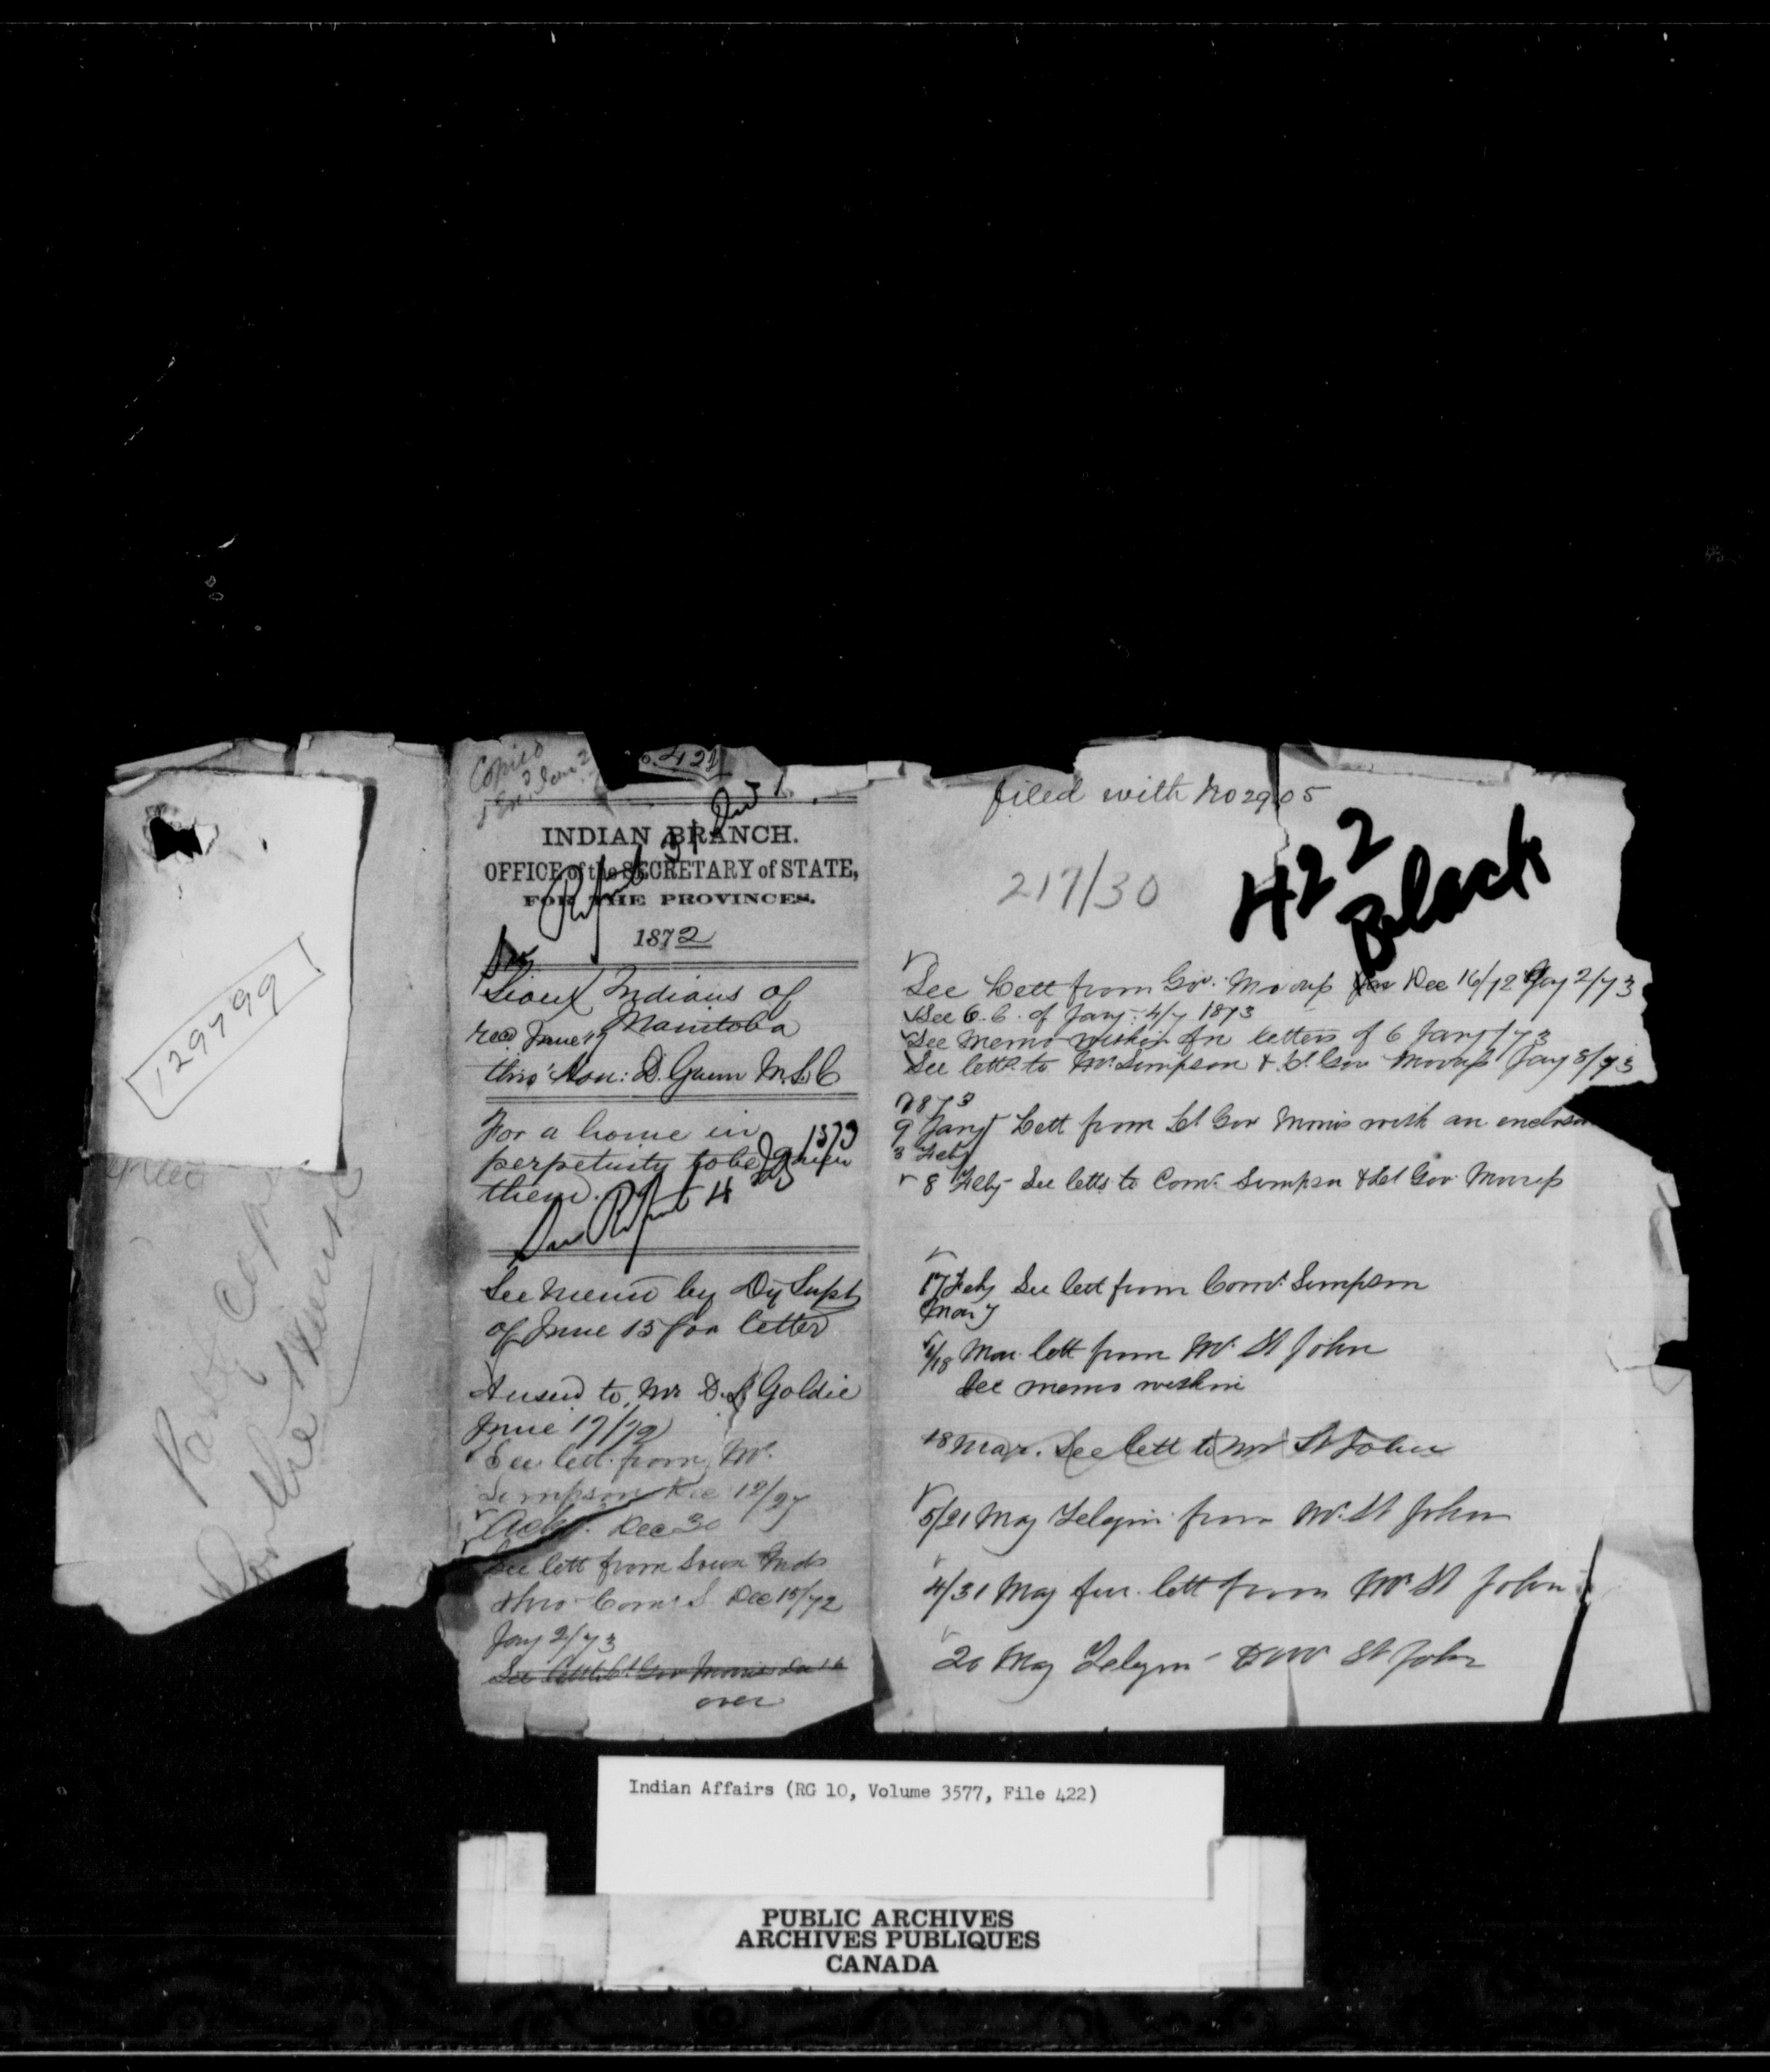 129799
Copied
422
INDIAN BRANCH.
OFFICE of the SECRETARY of STATE,
FOR THE PROVINCES.
1872
Sioux Indians of
Manitoba
recd June 19
thro' Hon: D. Gunn M.L.C
For a home in
perpetuity to be given
them.
1873
See memo by Dy Supt
of June 15 for letter
Answd to Mr D. L. Goldie
June 17/72
See lett. from Mr.
Simpson Dec 12/27
Ackd. Dec 30
See lett from Sioux Inds
thro Comr S. Dec 15/72
Jay 2/73
See lett Lt Gov Morris Dec 16
over
filed with No 2905
217/30
422
Black
See Lett from Gov. Morris Dec 16/72 Jay 2/73
See O.C. of Jany: 4/7 1873
See memo within for letters of 6 Jany/73
See letts. to Mr. Simpson & Lt. Gov Morris Jay 8/73
1873
9 Jany Lett from Lt Gov Morris with an enclosure
3 Feby
8 Feby See letts to Comr. Simpson & Lt Gov Morris
17 Feby See lett from Comr. Simpson
Mar 7
6/18 Mar. lett from Mr. St John
See memo within
18 Mar. See lett to Mr St John
5/21 May Telegm from Mr. St John
4/31 May fur. lett from Mr St John
20 May Telegm - Mr St John
Indian Affairs (RG 10, Volume 3577, File 422)
PUBLIC ARCHIVES
ARCHIVES PUBLIQUES
CANADA